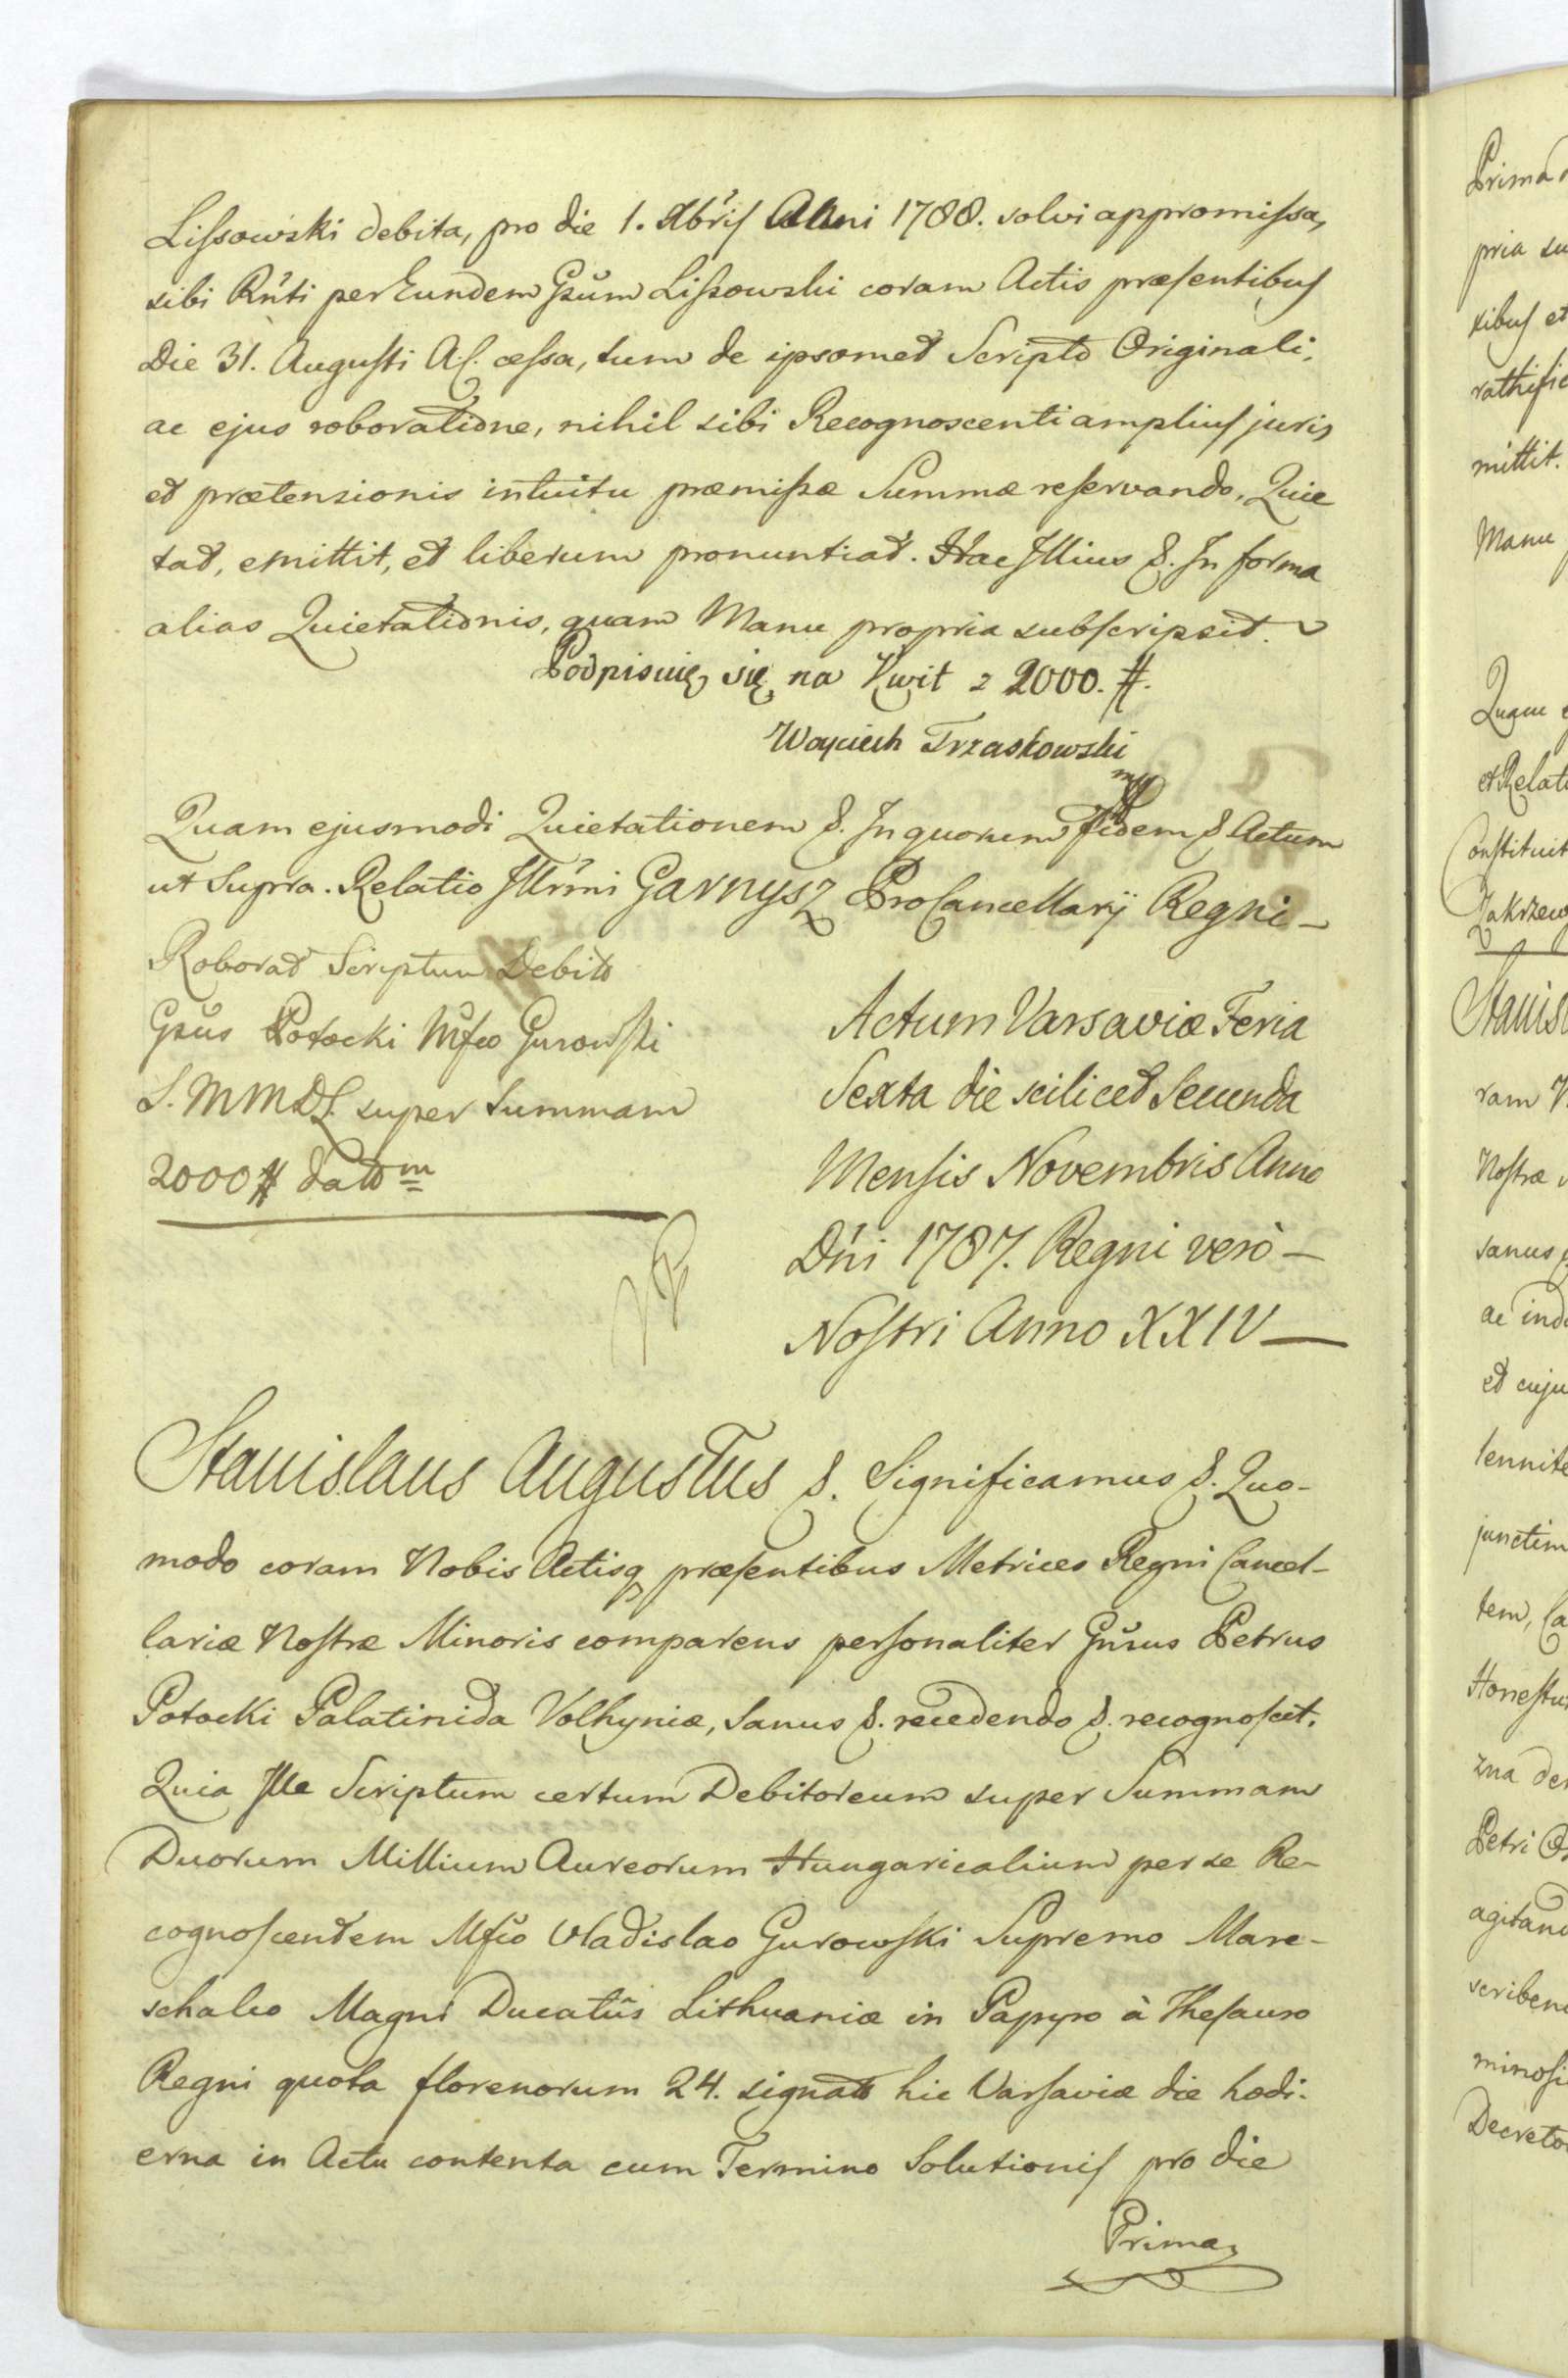 Lissowski debita, pro die 1. Xbris Anni 1788. solvi appromissa,
sibi Rn̄ti per Eundem Gsūm Lissowski coram Actis præsentibus
Die 31. Augusti A. cessa, tum de ipsomet Scripto Originali,
ac ejus roboratione, nihil sibi Recognoscenti amplius juris
et prætensionis intuitu præmissæ Summæ reservando, Quie
tat, emittit, et liberum pronuntiat. Hac Illius &. In forma
alias Quietationis, quam Manu propria subscripsit.
Podpisuię się na Kwit z 2000. #.
Woyciech Trzaskowski
mp
Quam ejusmodi Quietationem &. In quorum Fidem & Actum
ut Supra. Relatio Illr̄mi Garnysz ProCancellarij Regni -
Roborat Scriptum Debito
Gsūs Potocki Mf̄co Gurowski
S. M M D L. super Summam
2000 # dato m
Actum Varsaviæ Feria
Sexta die scilicet Secunda
Mensis Novembris Anno
Dn̄i 1787. Regni verò -
Nostri Anno XXIV -
Stanislaus Augustus &. Significamus &. Quo-
modo coram Nobis Actisq præsentibus Metrices Regni Cancel-
lariæ Nostræ Minoris comparens personaliter Gn̄sus Petrus
Potocki Palatinida Volhyniæ, Sanus &. recedendo &. recognoscit.
Quia Ille Scriptum certum Debitoreum super Summam
Duorum Millium Aureorum Hungaricalium per se Re-
cognoscentem Mf̄co Vladislao Gurowski Supremo Mare-
schalco Magni Ducatûs Lithuaniæ in Papyro à Thesauro
Regni quota florenorum 24. signato hic Varsaviæ die hodi-
erna in Actu contenta cum Termino Solutionis pro die
Prima